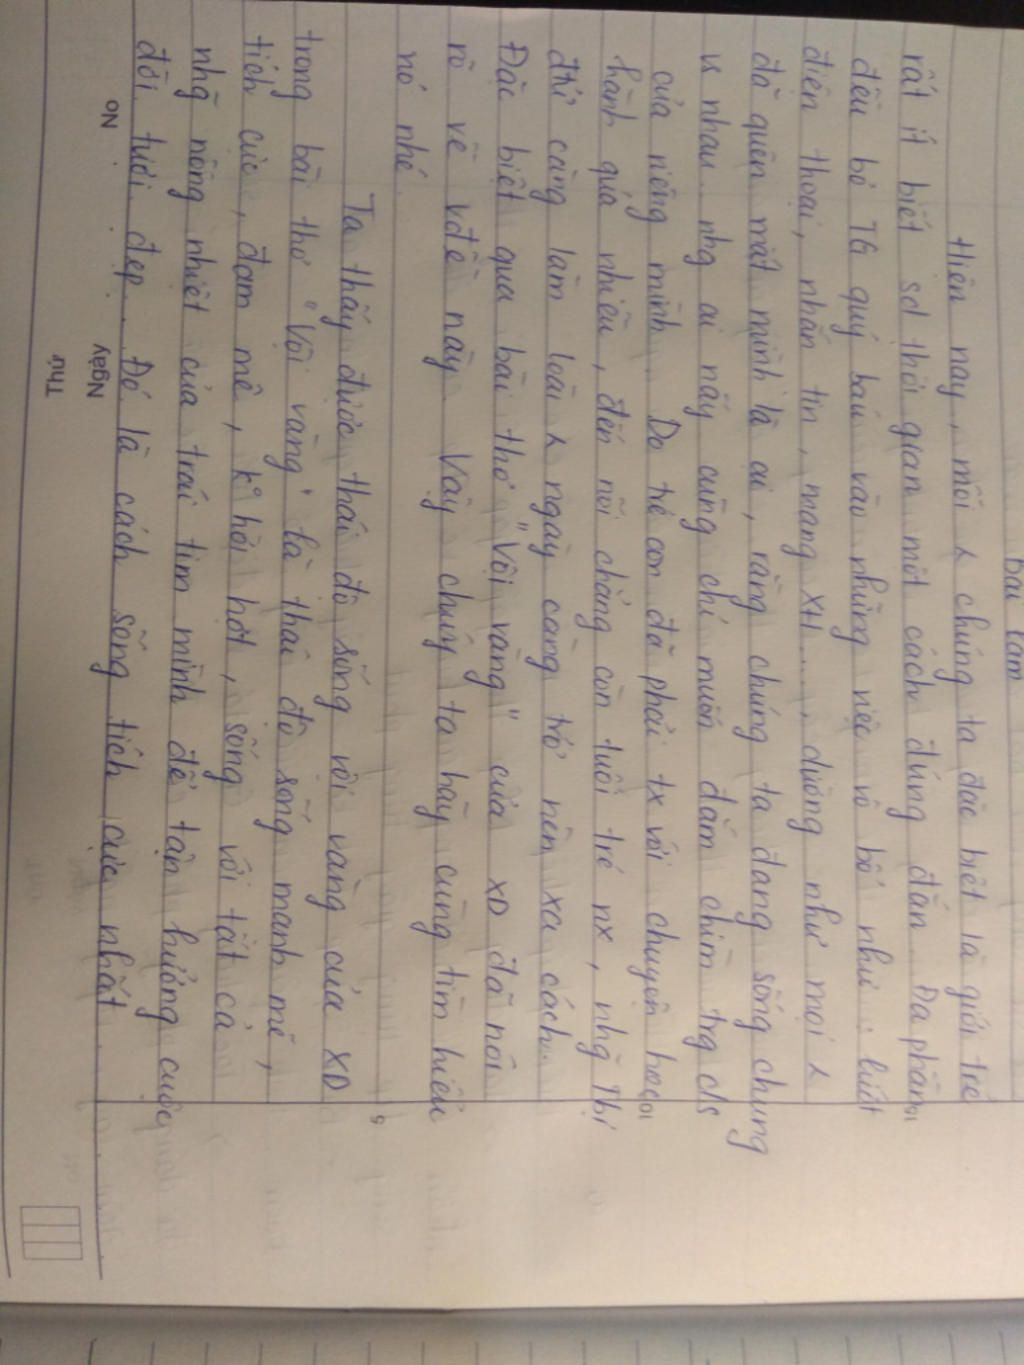 Bài làm
Hiện nay, mỗi chúng ta đặc biệt là giới trẻ
rất ít biết sd thời gian một cách đúng đắn. Đa phần
đều bỏ TG quý báu vào những việc vô bổ như: lướt
điện thoại, nhắn tin, mạng XH..., dường như mọi
đã quên mất mình là ai, rằng chúng ta đang sống chung
vs nhau. nhg ai nấy cũng chỉ muốn đắm chìm trg c/s
của riêng mình. Do trẻ con đã phải tx với chuyện học
hành quá nhiều, đến nỗi chẳng còn tuổi trẻ nx, nhg Thị
đhỉ càng làm loài ngày càng trở nên xa cách.
Đặc biệt qua bài thơ "Vội vàng" của XD đã nói
rõ về vđề này. Vậy chúng ta hãy cùng tìm hiểu
nó nhé.
Ta thấy được thái độ sống vội vàng của XD
trong bài thơ "Vội vàng" là thái độ sống mạnh mẽ,
tích cực, đam mê, k° hời hợt, sống với tất cả
nhg nồng nhiệt của trái tim mình để tận hưởng cuộc
đời tươi đẹp. Đó là cách sống tích cực nhất.
No
Ngày
Thứ